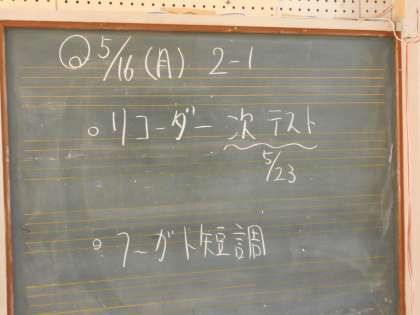 5/16(月) 2-1
○リコーダー 次 テスト
5/23
○フーガト短調